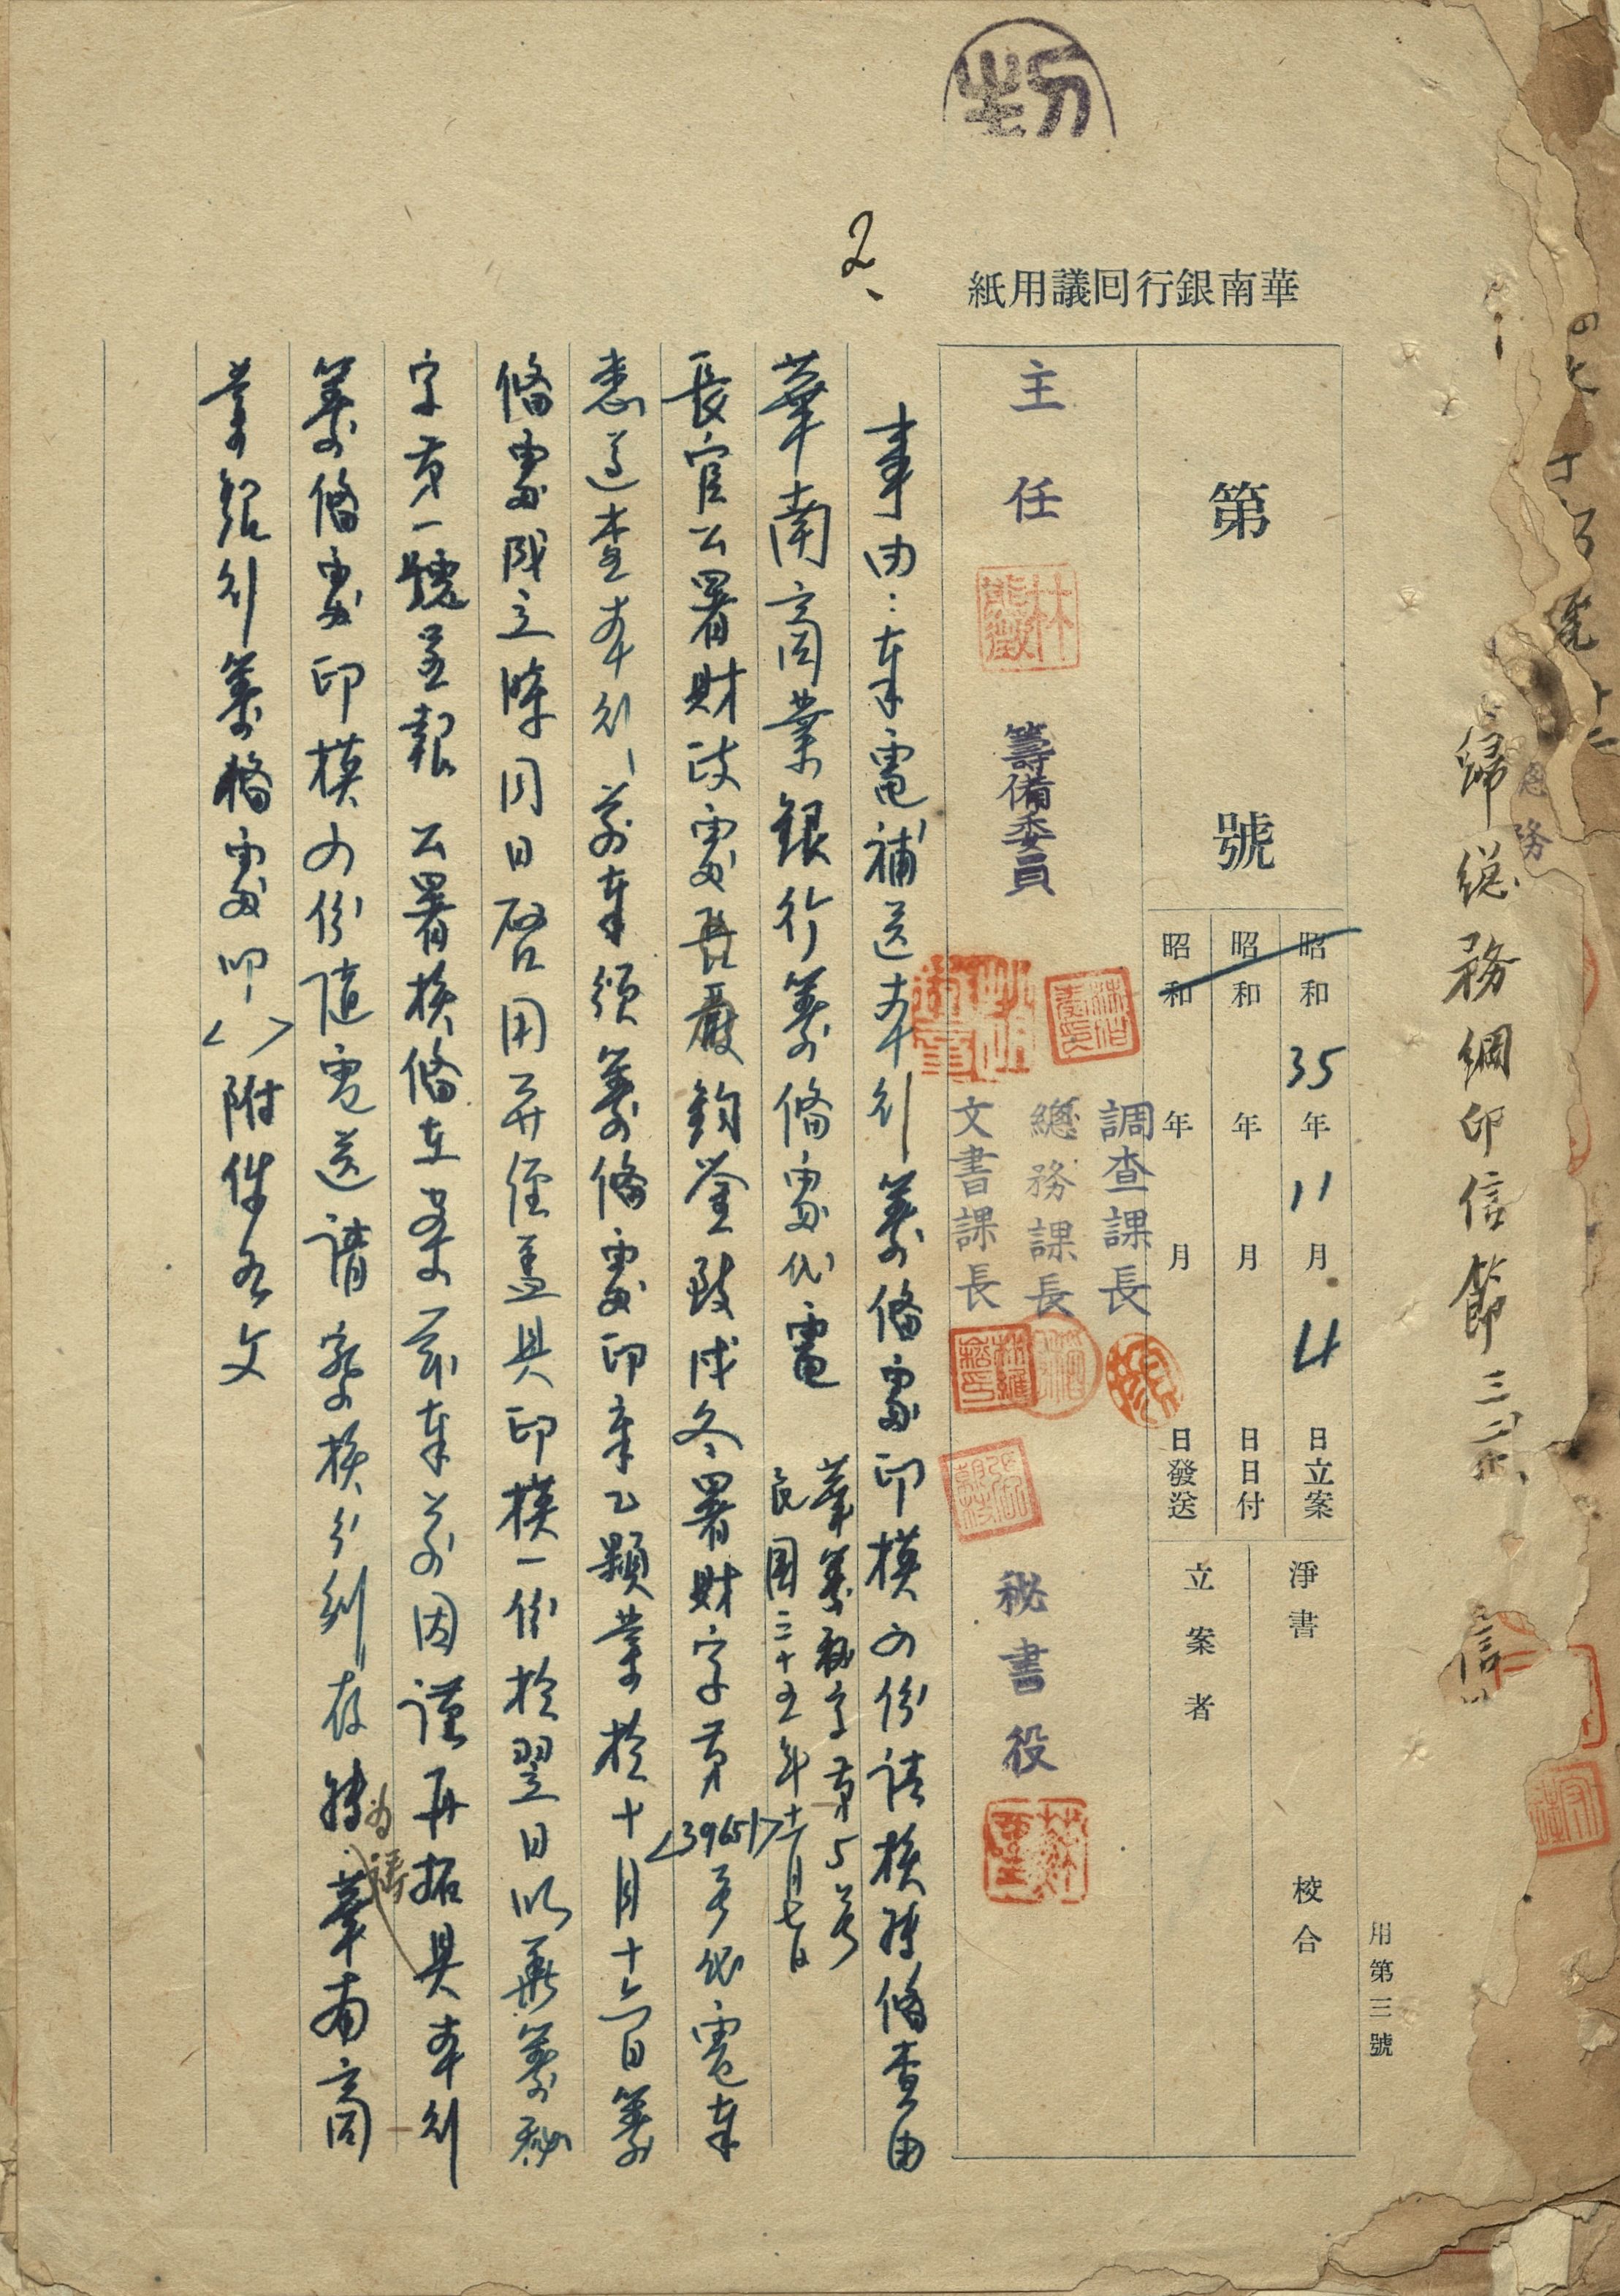 歸總務綱印信節
總務
華南銀行囘議用紙
2、
用第三號
第 號
昭和 35 年 11 月 4 日立案
昭和 年 月 日日付
昭和 年 月 日發送
淨書 校合
立案者
主任 籌備委員
調查課長
總務課長
文書課長
秘書役
林熊徵
事由：奉電補送本行籌備處印模四份請核轉備查由
華南商業銀行籌備處代電
華籌秘字第5號
民國三十五年十一月七日
長官公署財政處處長嚴鈞鑒致戌冬署財字第<3965>號代電奉
悉遵查本行前奉頒籌備處印章乙顆業於十月十六日籌
備處成立隊同日啓用并經蓋具印模一份於翌日以華籌秘
字第一號呈報 公署核備在案茲奉前因謹再拓具本行
籌備處印模四份隨電送請察核分別存轉為禱華南商
業銀行籌備處叩<>附件如文